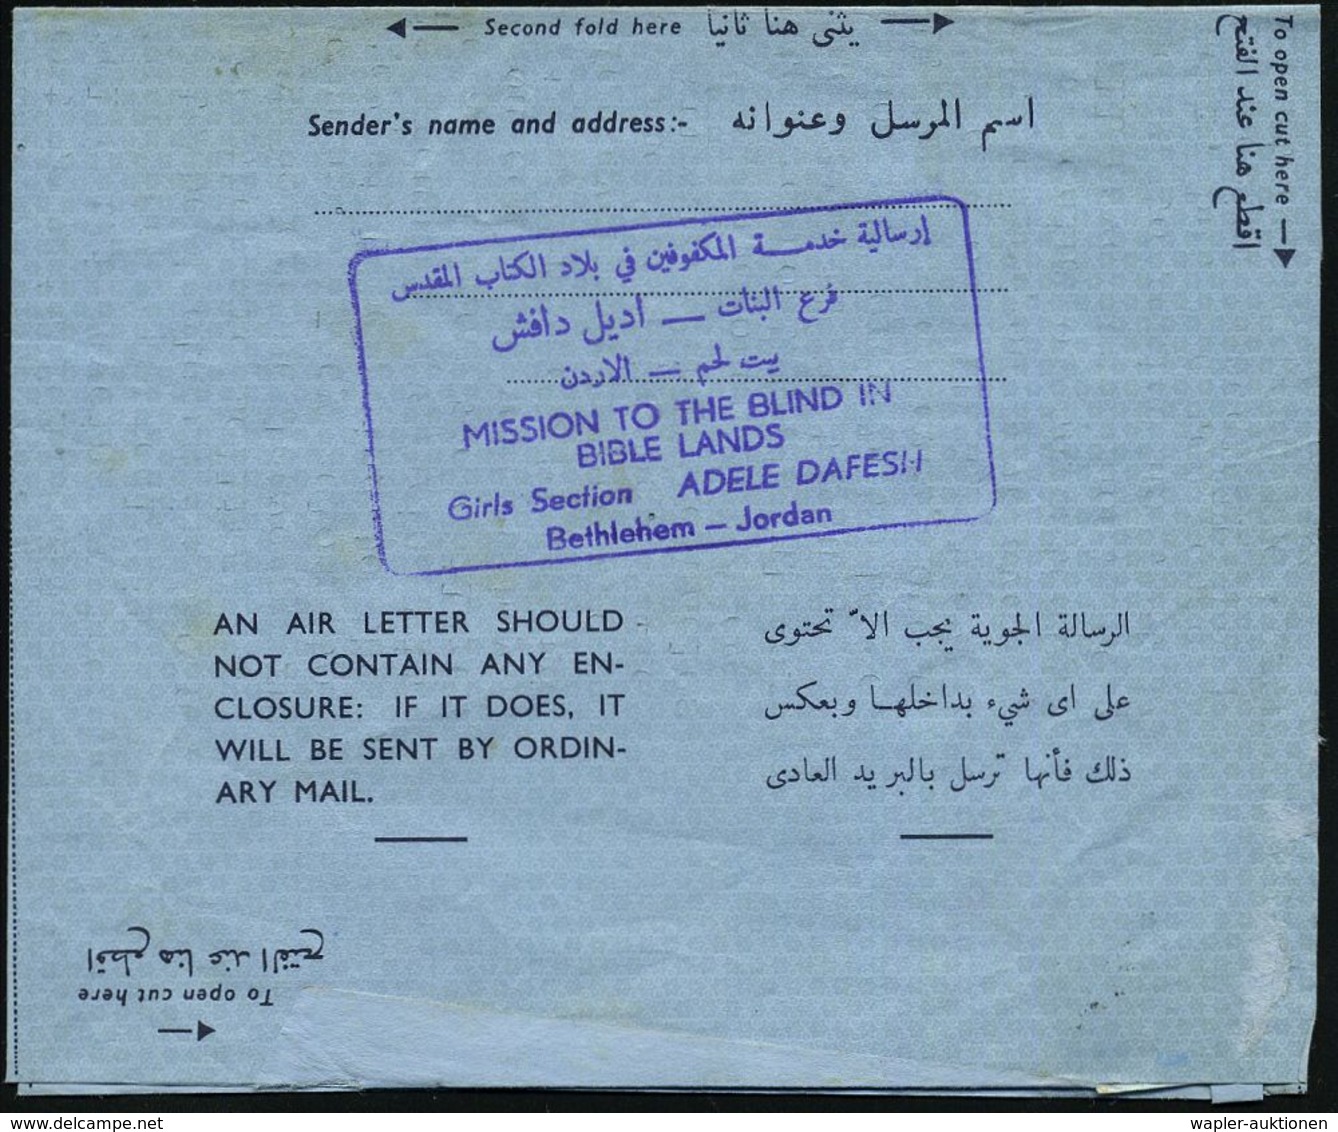 Second fold here يثنى هنا ثانياً
To open cut here
اقطع هنا عند الفتح
Sender's name and address:- اسم المرسل وعنوانه
إرسالية خدمة المكفوفين في بلاد الكتاب المقدس
فرع البنات — اديل دافش
بيت لحم — الاردن
MISSION TO THE BLIND IN
BIBLE LANDS
Girls Section ADELE DAFESH
Bethlehem — Jordan
AN AIR LETTER SHOULD
NOT CONTAIN ANY EN-
CLOSURE: IF IT DOES, IT
WILL BE SENT BY ORDIN-
ARY MAIL.
الرسالة الجوية يجب الاّ تحتوى
على اى شيء بداخلها وبعكس
ذلك فأنها ترسل بالبريد العادى
اقطع هنا عند الفتح
To open cut here
www.delcampe.net
wapler-auktionen